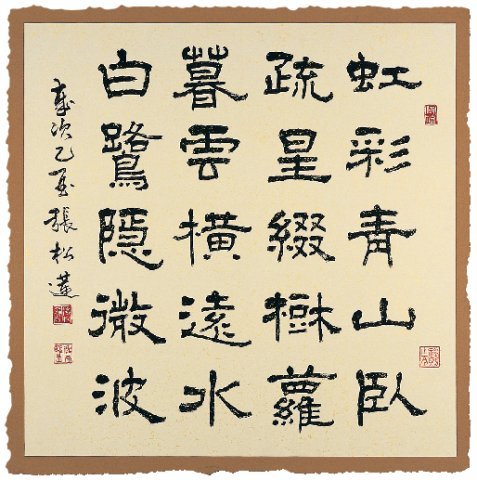 虹彩青山臥
疏星綴樹蘿
暮雲橫遠水
白鷺隱微波
歲次乙亥張松蓮